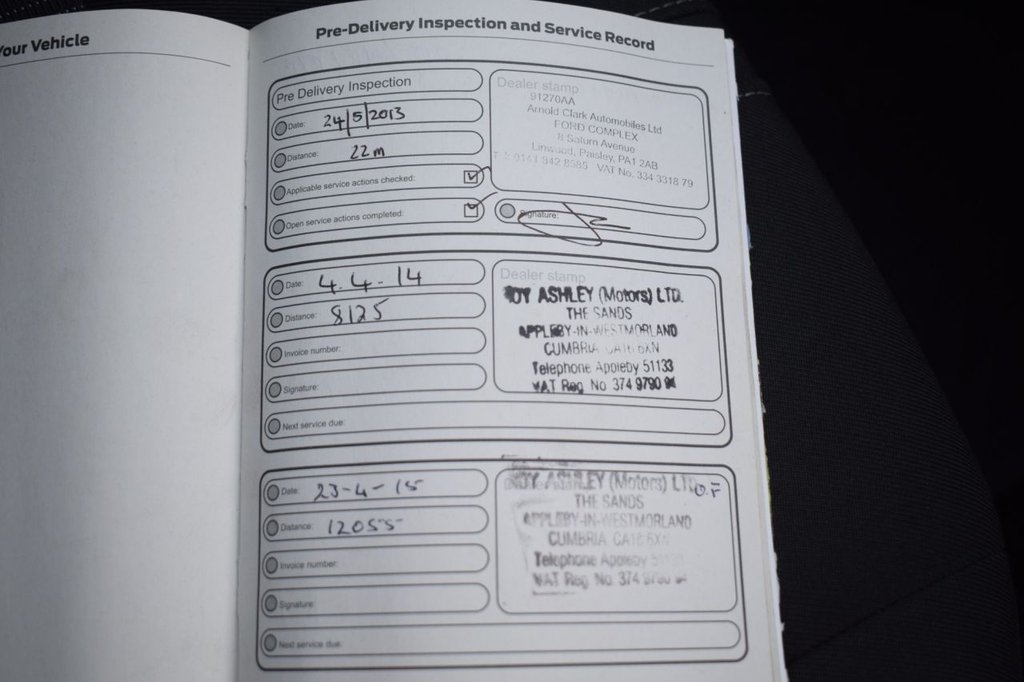 Your Vehicle
Pre-Delivery Inspection and Service Record
Pre Delivery Inspection
Date: 24/5/2013
Distance: 22m
Applicable service actions checked:
Open service actions completed:
Dealer stamp
91270AA
Arnold Clark Automobiles Ltd
FORD COMPLEX
8 Saturn Avenue
Linwood, Paisley, PA1 2AB
T: 0141 842 8585 VAT No. 334 3318 79
Signature:
Date: 4.4.-14
Distance: 8125
Invoice number:
Signature:
Next service due:
Dealer stamp
ASHLEY (Motors) LTD.
THE SANDS
APPLEBY-IN-WESTMORLAND
CUMBRIA CA16 6XN
Telephone Appleby 51133
VAT Reg No 374 9790
Date: 23-4-15
Distance: 12055
Invoice number:
Signature:
Next service due:
ASHLEY (Motors) LTD. O.F
THE SANDS
APPLEBY-IN-WESTMORLAND
CUMBRIA CA16 6XN
Telephone Appleby
VAT Reg No 374 9790